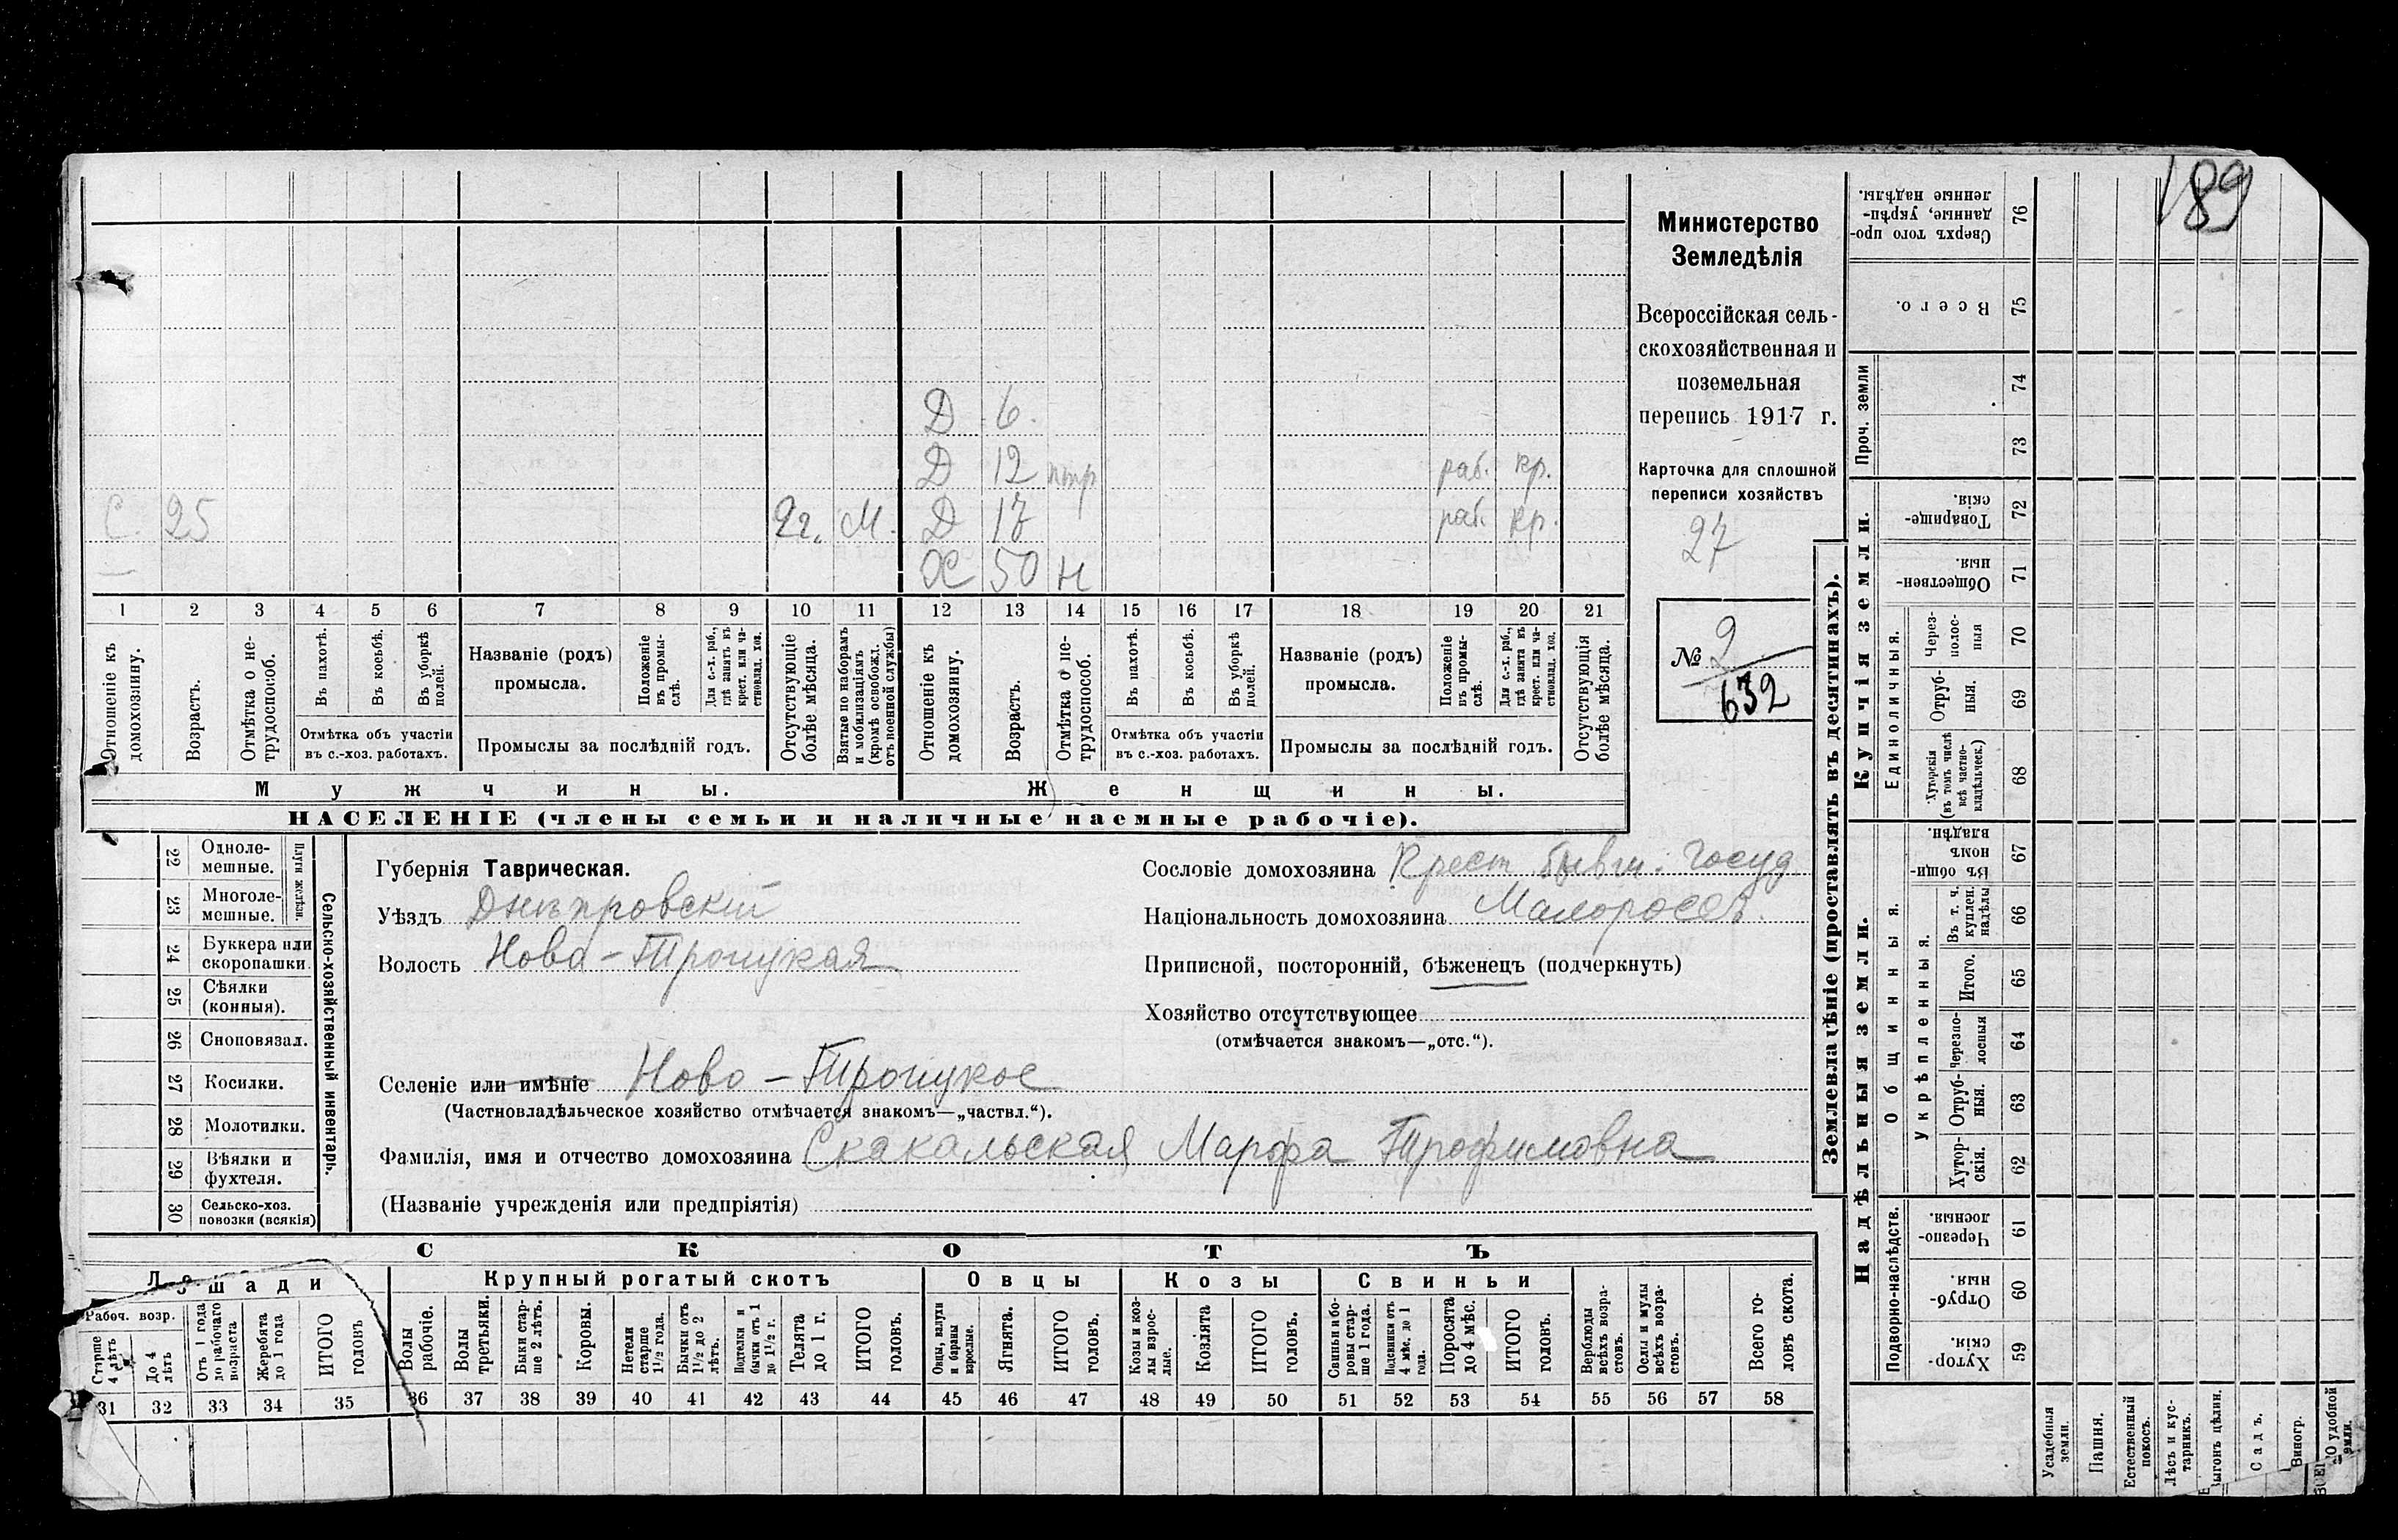 189
Д 6.
Д 12 нтр раб. кр.
С. 25 2 г. М. Д 17 раб. кр.
Ж 50 н
1 2 3 4 5 6 7 8 9 10 11 12 13 14 15 16 17 18 19 20 21
Отношеніе къ домохозяину.
Возрастъ.
Отмѣтка о не-
трудоспособ.
Въ пахотѣ.
Въ косьбѣ.
Въ уборкѣ полей.
Отмѣтка объ участіи
въ с.-хоз. работахъ.
Названіе (родъ)
промысла.
Положеніе
въ промы-
слѣ.
Для с.-х. раб.,
гдѣ занятъ въ
крест. или ча-
стновлад. хоз.
Промыслы за послѣдній годъ.
Отсутствующіе
болѣе мѣсяца.
Взятые по наборамъ
и мобилизаціямъ
(кромѣ освобожд.
отъ военной службы)
Отношеніе къ
домохозяину.
Возрастъ.
Отмѣтка о не-
трудоспособ.
Въ пахотѣ.
Въ косьбѣ.
Въ уборкѣ
полей.
Отмѣтка объ участіи
въ с.-хоз. работахъ.
Названіе (родъ)
промысла.
Положеніе
въ промы-
слѣ.
Для с.-х. раб.,
гдѣ занята въ
крест. или ча-
стновлад. хоз.
Промыслы за послѣдній годъ.
Отсутствующія
болѣе мѣсяца.
Мужчины.
Женщины.
НАСЕЛЕНІЕ (члены семьи и наличные наемные рабочіе).
Министерство
Земледѣлія
Всероссійская сель-
скохозяйственная и
поземельная
перепись 1917 г.
Карточка для сплошной
переписи хозяйствъ
27
№ 2
632
22 Одноле-
мешные.
23 Многоле-
мешные.
Плуги желѣзн
24 Буккера или
скоропашки.
25 Сѣялки
(конныя).
26 Сноповязал.
27 Косилки.
28 Молотилки.
29 Вѣялки и
фухтеля.
30 Сельско-хоз.
повозки (всякія)
Сельско-хозяйственный инвентарь.
Губернія Таврическая.
Уѣздъ Днѣпровскій
Волость Ново-Троицкая
Селеніе или имѣніе Ново-Троицкое
(Частновладѣльческое хозяйство отмѣчается знакомъ—„частвл.“).
Фамилія, имя и отчество домохозяина Скакальская Марфа Трофимовна
(Названіе учрежденія или предпріятія)
Сословіе домохозяина Крест. бывш. Госуд.
Національность домохозяина Малоросс.
Приписной, посторонній, бѣженецъ (подчеркнуть)
Хозяйство отсутствующее
(отмѣчается знакомъ—„отс.“).
СКОТЪ
Лошади
Рабоч. возр.
Старше
4 лѣтъ
До 4
лѣтъ
Отъ 1 года
до рабочаго
возраста
Жеребята
до 1 года
ИТОГО
головъ
Крупный рогатый скотъ
Волы
рабочіе.
Волы
третьяки.
Быки стар-
ше 2 лѣтъ.
Коровы.
Нетели
старше
1½ года.
Бычки отъ
1½ до 2
лѣтъ.
Подтелки и
бычки отъ 1
до 1½ г.
Телята
до 1 г.
ИТОГО
головъ.
Овцы
Овцы, валухи
и бараны
взрослые.
Ягнята.
ИТОГО
головъ.
Козы
Козы и коз-
лы взрос-
лые.
Козлята
ИТОГО
головъ.
Свиньи
Свиньи и бо-
ровы стар-
ше 1 года.
Подсвинки отъ
4 мѣс. до 1
года.
Поросята
до 4 мѣс.
ИТОГО
головъ.
Верблюды
всѣхъ возра-
стовъ.
Ослы и мулы
всѣхъ возра-
стовъ.
Всего го-
ловъ скота.
31 32 33 34 35 36 37 38 39 40 41 42 43 44 45 46 47 48 49 50 51 52 53 54 55 56 57 58
Землевладѣніе (проставлять въ десятинахъ).
Надѣльныя земли.
Купчія земли.
Проч. земли
Сверхъ того про-
данные, укрѣп-
ленные надѣлы.
76
Всего.
75
74
73
Товарище-
скія.
72
Обществен-
ныя.
71
Единоличныя.
Через-
полос-
ныя
70
Отруб-
ныя.
69
Хуторскія
(въ томъ числѣ
всѣ частно-
владѣльческ.)
68
Общинныя.
Въ общин-
номъ
владѣн.
67
Укрѣпленныя.
Въ т. ч.
куплен.
надѣлы
66
Итого.
65
Черезпо-
лосныя
64
Отруб-
ныя.
63
Хутор-
скія.
62
Подворно-наслѣдств.
Черезпо-
лосныя.
61
Отруб-
ныя.
60
Хутор-
скія.
59
Усадебныя
земли.
Пашня.
Естественный
покосъ.
Лѣсъ и кус-
тарникъ.
Выгонъ цѣлин.
Садъ.
Виногр.
удобной
земли.